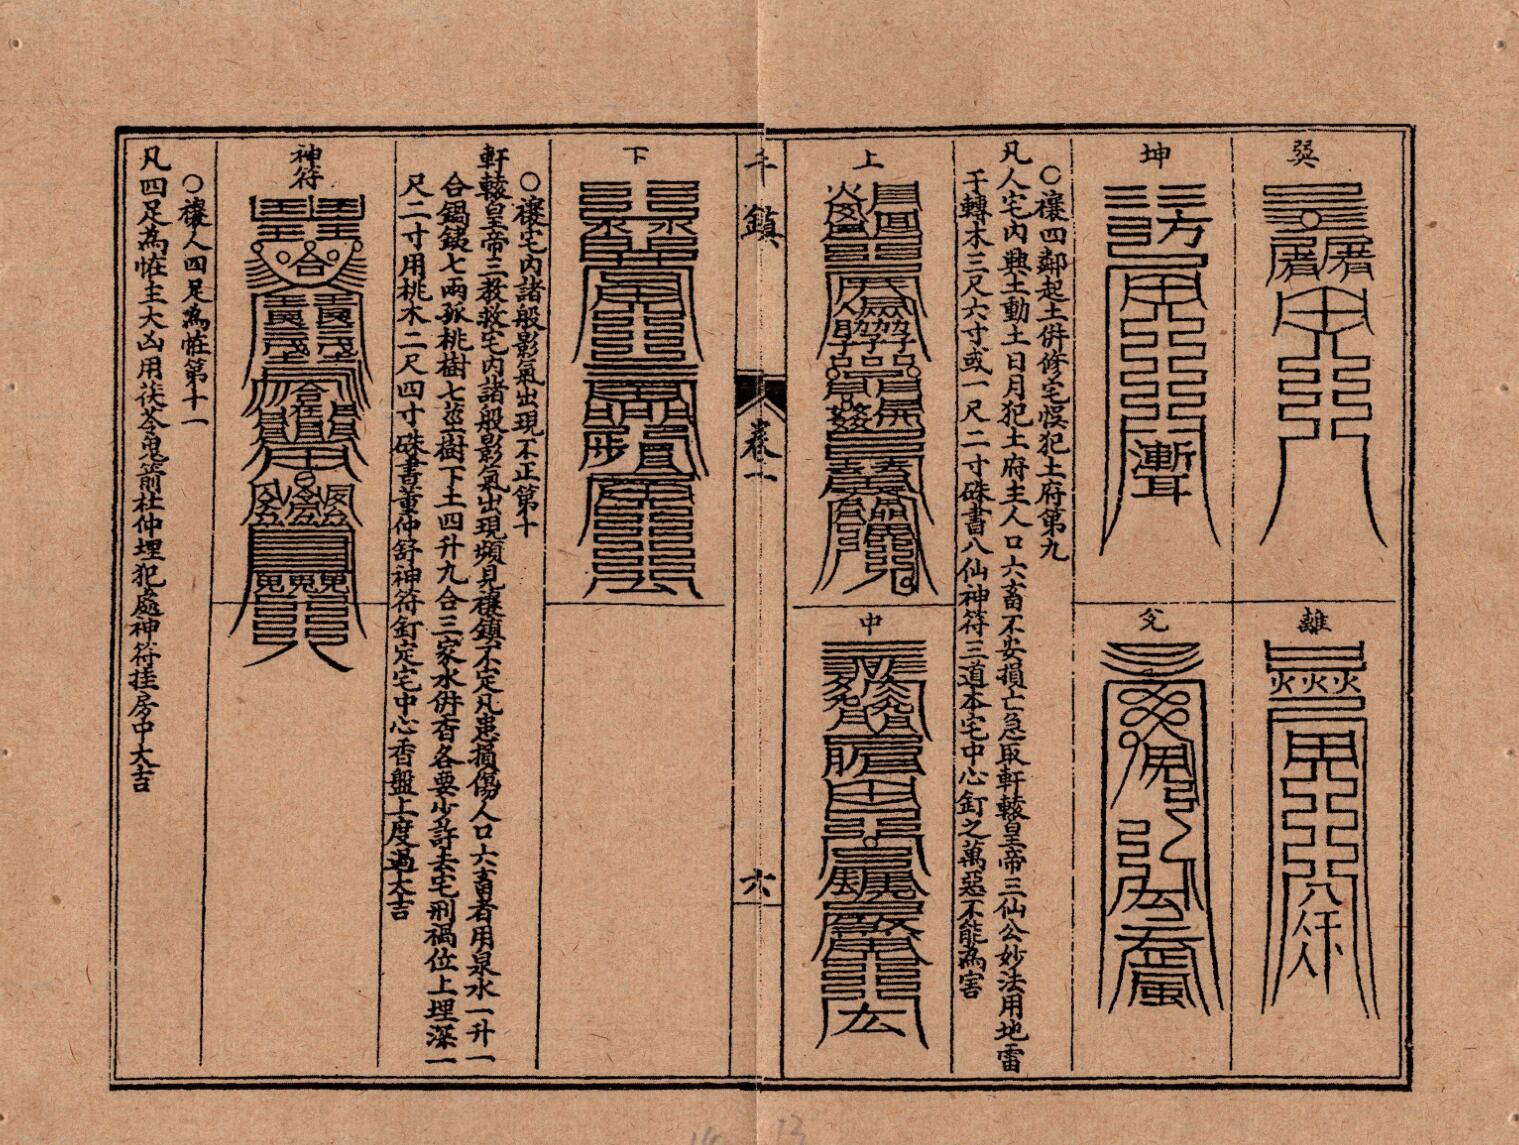 巽
離
坤
兌
○禳四鄰起土併修宅悞犯土府第九
凡人宅內興土動土日月犯土府主人口六畜不安損亡急取軒轅皇帝三仙公妙法用地雷
千轉木三尺六寸或一尺二寸硃書八仙神符三道本宅中心釘之萬惡不能為害
上
中
千鎮
卷一
六
下
○禳宅內諸般影氣出現不正第十
軒轅皇帝三教救宅內諸般影氣出現頻見禳鎮不定凡患損傷人口六畜者用泉水一升一
合鍋鉄七兩孤桃樹七莖樹下土四升九合三家水併香各要少許去宅刑禍位上埋深一
尺二寸用桃木二尺四寸硃書董仲舒神符釘定宅中心香盤上度過大吉
神符
○禳人四足為恠第十一
凡四足為恠主大凶用茯苓鬼箭杜仲埋犯處神符挂房中大吉